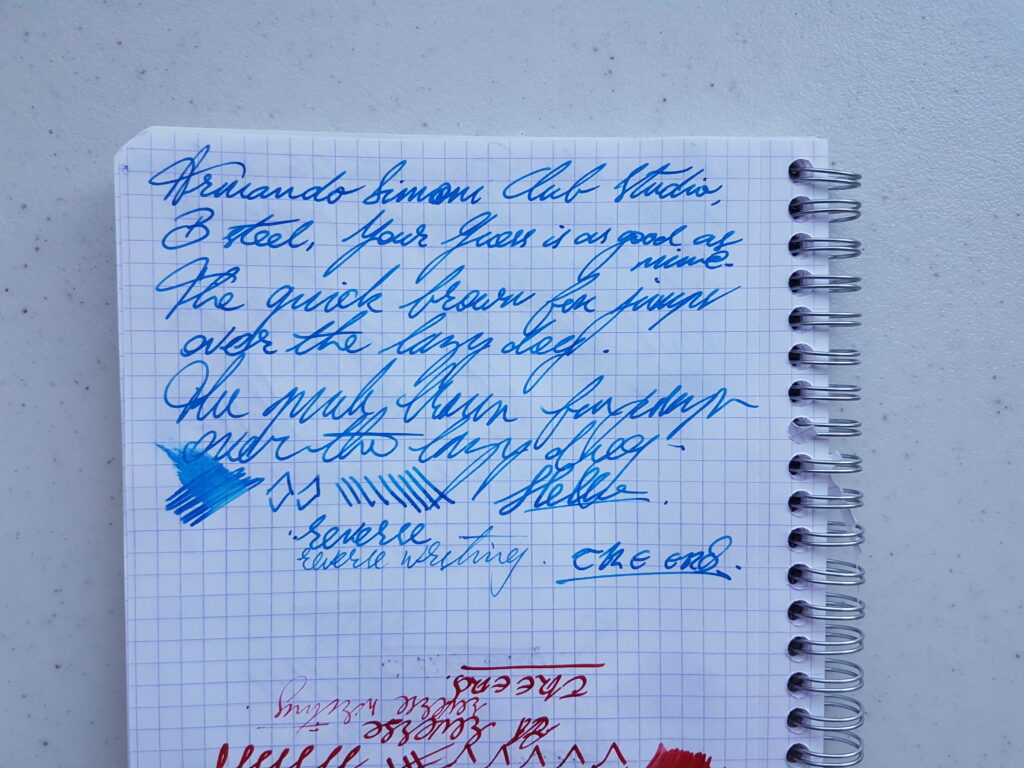 Armando Simoni Club Studio,
B steel, Your Guess is as good as
mine.
The quick brown fox jumps
over the lazy dog.
The quick brown fox jumps
over the lazy dog.
reverse
reverse writing.
The end.
The end.
reverse writing
reverse